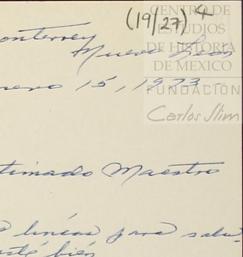 (19/27) 4
CENTRO DE
ESTUDIOS
DE HISTORIA
DE MEXICO
FUNDACIÓN
Carlos Slim
onterrey
Nuevo León
nero 15, 1973
timado Maestro
líneas para salu-
esté bien